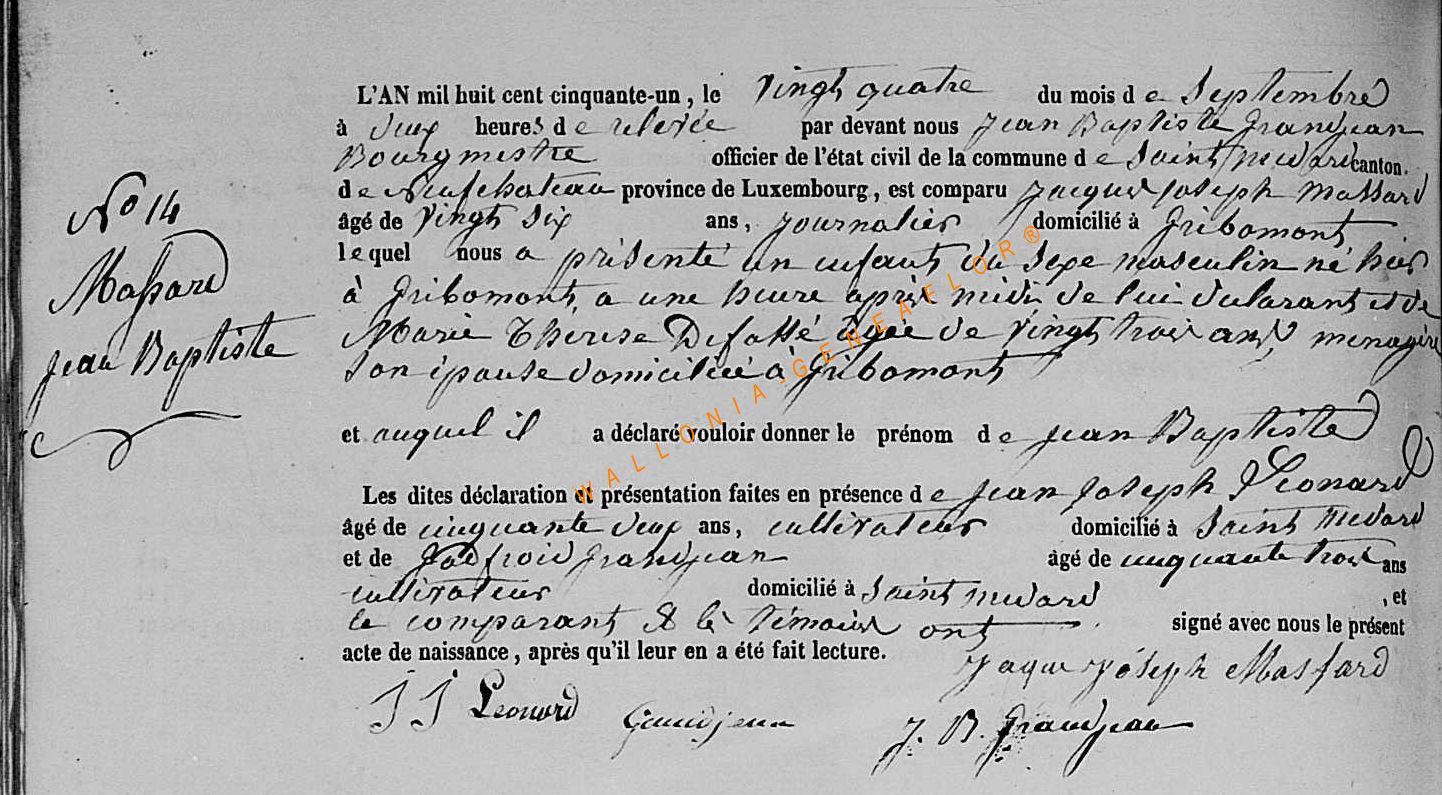 N° 14
Massard
Jean Baptiste
L'AN mil huit cent cinquante-un, le vingt quatre du mois de Septembre
à deux heures de relevée par devant nous Jean Baptiste Grandjean
Bourgmestre officier de l'état civil de la commune de Saint Medard canton.
de Neufchateau province de Luxembourg, est comparu Jacques Joseph Massard
âgé de vingt six ans, journalier domicilié à Gribomont
lequel nous a présenté un enfant du sexe masculin né hier
à Gribomont a une heure après midi de lui déclarant et de
Marie Thérese Defassé agée de vingt trois ans, menagère
son épouse domiciliée à Gribomont
et auquel il a déclaré vouloir donner le prénom de Jean Baptiste
Les dites déclaration et présentation faites en présence de Jean Joseph Léonard
âgé de cinquante deux ans, cultivateur domicilié à Saint Medard
et de Godfroid Grandjean âgé de cinquante trois ans
cultivateur domicilié à Saint Medard, et
le comparant & les témoins ont signé avec nous le présent
acte de naissance, après qu'il leur en a été fait lecture.
Jaque Joseph Massard
J J Leonard Grandjean J. B. Grandjean
WALLONIA-GENEAFLOR®